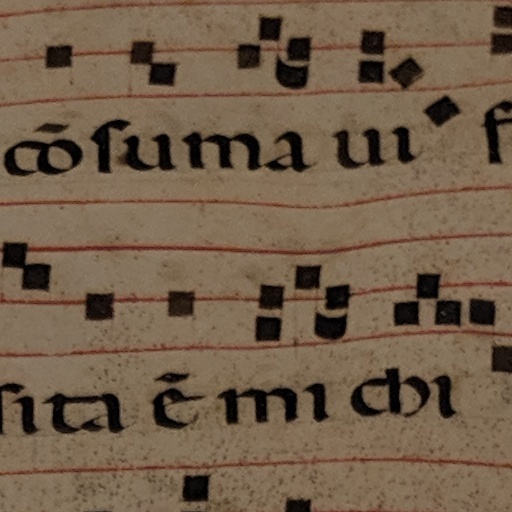 cōſuma ui
ſita ē mi chi